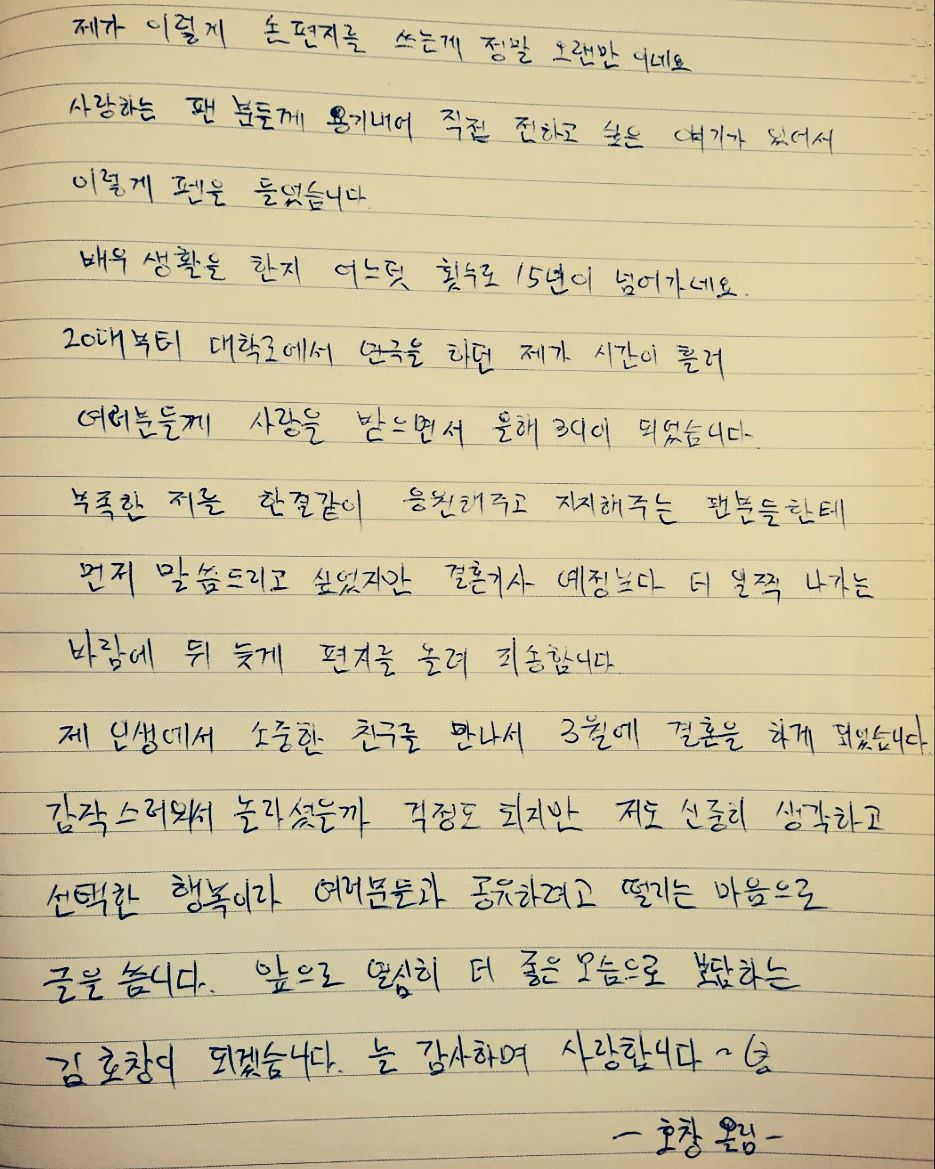 제가 이렇게 손편지를 쓰는게 정말 오랜만 이네요
사랑하는 팬 분들께 용기내어 직접 전하고 싶은 얘기가 있어서
이렇게 펜을 들었습니다
배우 생활을 한지 어느덧 횟수로 15년이 넘어가네요.
20대부터 대학로에서 연극을 하던 제가 시간이 흘러
여러분들께 사랑을 받으면서 올해 39이 되었습니다.
부족한 저를 한결같이 응원해주고 지지해주는 팬분들한테
먼저 말씀드리고 싶었지만 결혼기사 예정보다 더 일찍 나가는
바람에 뒤 늦게 편지를 올려 죄송합니다
제 인생에서 소중한 친구를 만나서 3월에 결혼을 하게 되었습니다.
갑작스러워서 놀라셨을까 걱정도 되지만 저도 신중히 생각하고
선택한 행복이라 여러분들과 공유하려고 떨리는 마음으로
글을 씁니다. 앞으로 열심히 더 좋은 모습으로 보답하는
김호창이 되겠습니다. 늘 감사하며 사랑합니다~
- 호창 올림 -